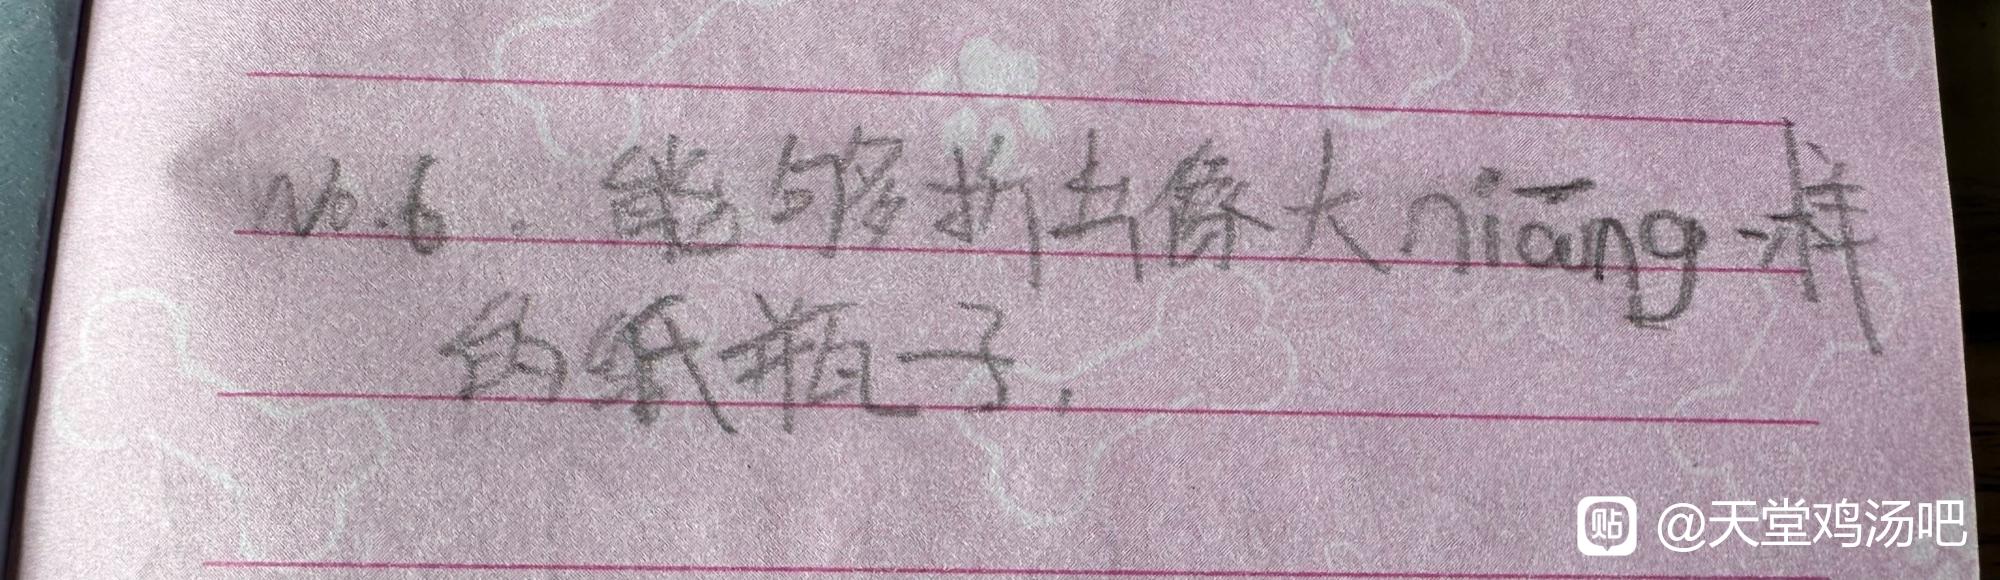 No.6. 能够折出像大niāng一样
的纸瓶子.
贴 @天堂鸡汤吧